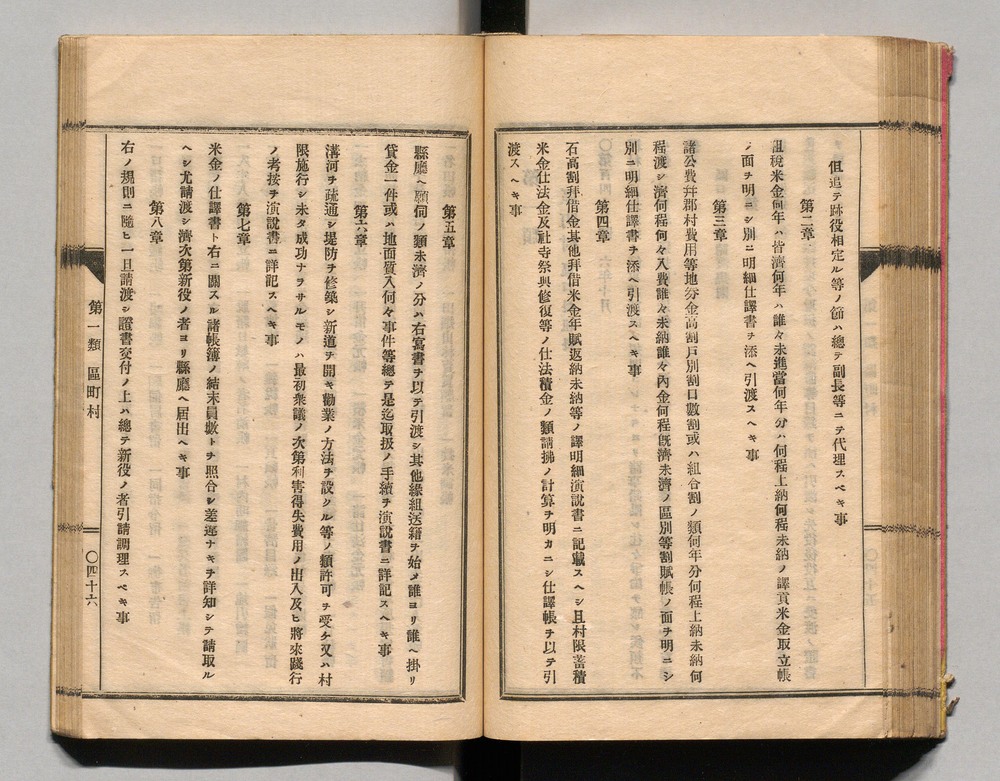 但追テ跡役相定ル等ノ節ハ總テ副長等ニテ代理スベキ事
第二章
租税米金何年ハ皆濟何年ハ誰々未進當何年分ハ何程上納何程未納ノ譯貢米金取立帳
ノ面チ明ニシ別ニ明細仕譯書チ添ヘ引渡スヘキ事
第三章
諸公費幷郡村費用等地券金高割戸別割口數割或ハ組合割ノ類何年分何程上納未納何
程渡シ濟何程何々入費誰々未納誰々內金何程旣濟未濟ノ區別等割賦帳ノ面チ明ニシ
別ニ明細仕譯書チ添ヘ引渡スヘキ事
第四章
石高割拜借金其他拜借米金年賦返納未納等ノ譯明細演說書ニ記載スヘシ且村限蓄積
米金仕法金及社寺祭典修復等ノ仕法積金ノ類請拂ノ計算チ明カニシ仕譯帳チ以テ引
渡スヘキ事
第五章
縣廳ヘ願伺ノ類未濟ノ分ハ右寫書チ以テ引渡シ其他緣組送籍チ始メ誰ヨリ誰ヘ掛リ
貸金一件或ハ地面質入何々事件等總テ是迄取扱ノ手續チ演說書ニ詳記スヘキ事
第六章
溝河チ疏通シ堤防チ修築シ新道チ開キ勸業ノ方法チ設クル等ノ類許可チ受ケ又ハ村
限施行シ未タ成功ナラサルモノハ最初衆議ノ次第利害得失費用ノ出入及ヒ將來踐行
ノ考按チ演說書ニ詳記スヘキ事
第七章
米金ノ仕譯書ト右ニ關スル諸帳簿ノ結末員數トチ照合シ差違ナキチ詳知シテ請取ル
ヘシ尤請渡シ濟次第新役ノ者ヨリ縣廳ヘ屆出ヘキ事
第八章
右ノ規則ニ隨ヒ一旦請渡シ證書交付ノ上ハ總テ新役ノ者引請調理スベキ事
第一類 區町村
〇四十六